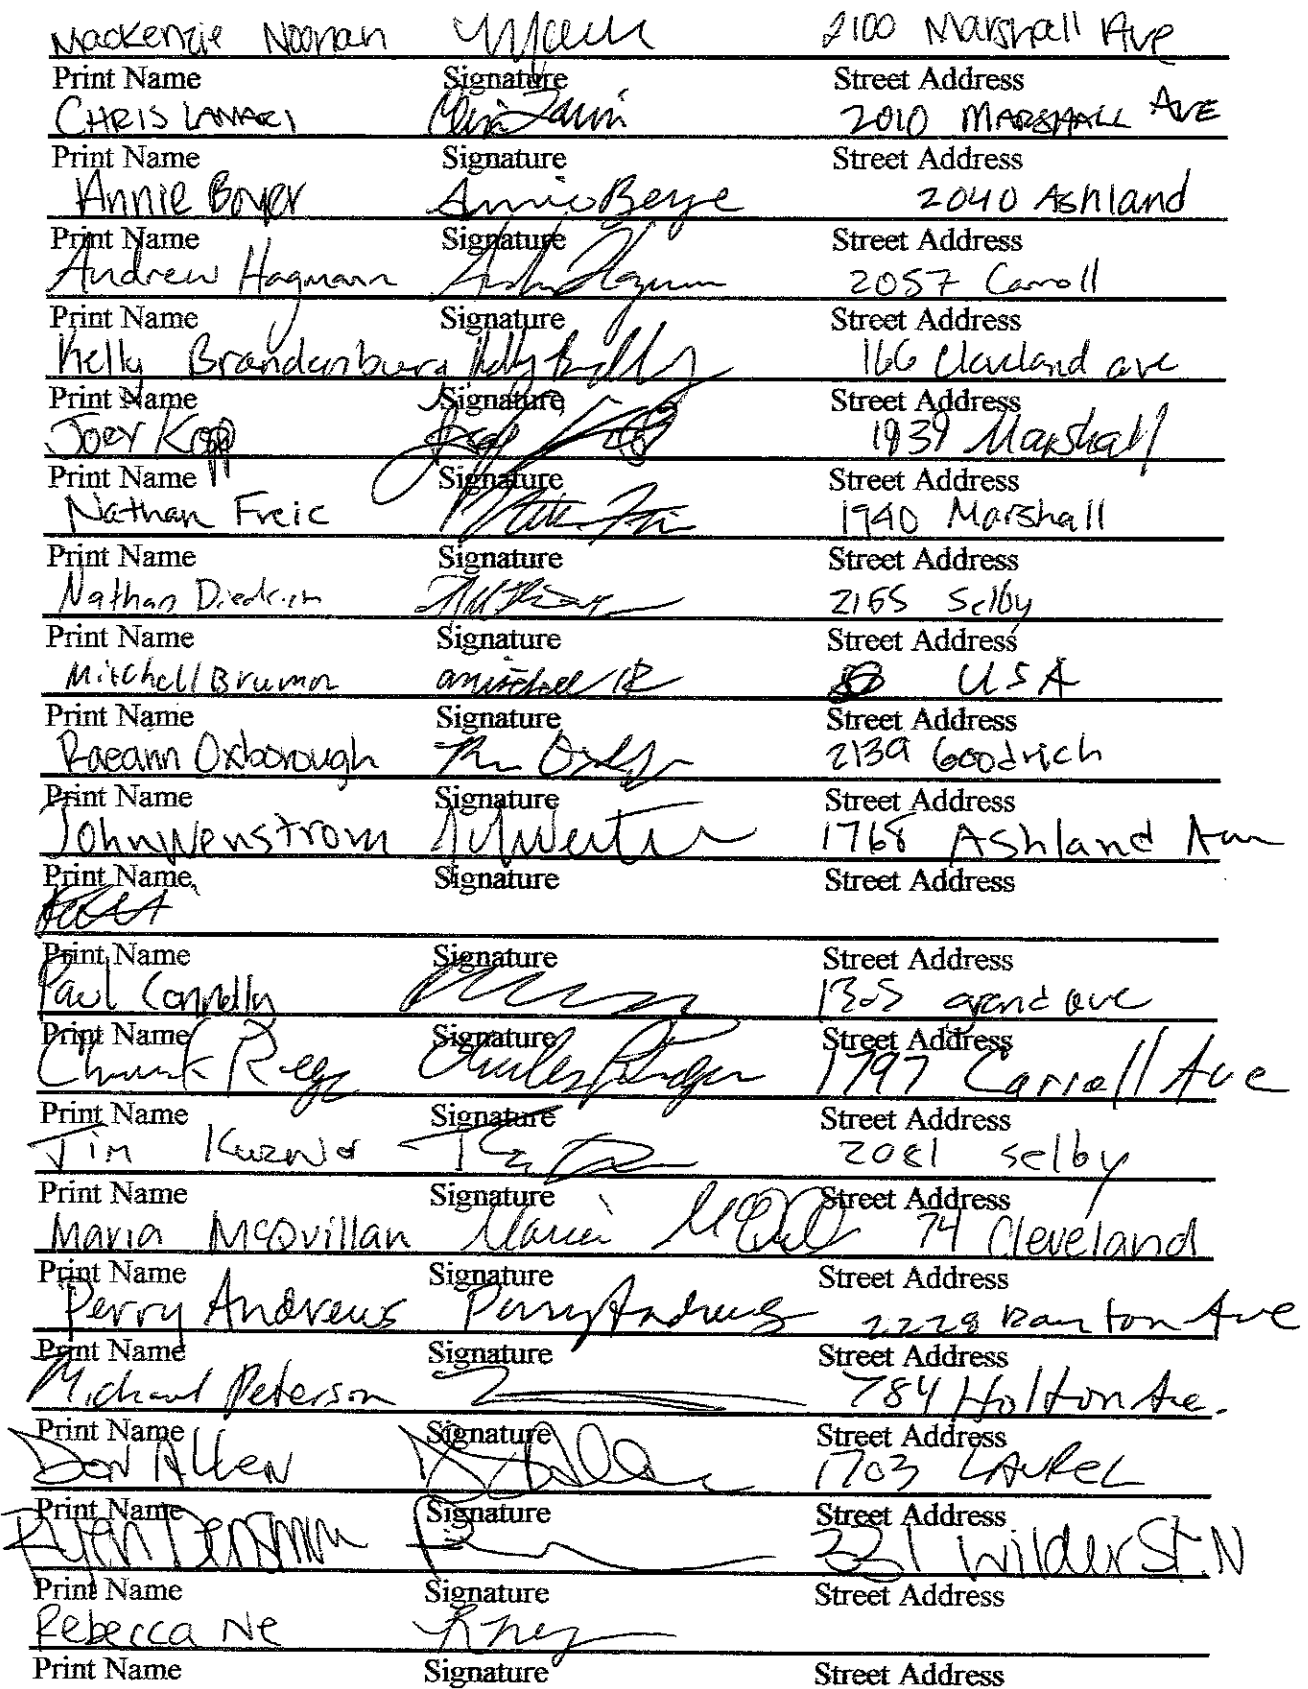 Mackenzie Noonan 2100 Marshall Ave
Print Name Signature Street Address
CHRIS LAMARI 2010 MARSHALL AVE
Print Name Signature Street Address
Annie Boyer 2040 Ashland
Print Name Signature Street Address
Andrew Hagmann 2057 Carroll
Print Name Signature Street Address
Kelly Brandenburg 166 Cleveland ave
Print Name Signature Street Address
Joey Kopp 1939 Marshall
Print Name Signature Street Address
Nathan Freic 1940 Marshall
Print Name Signature Street Address
Nathan Diedrich 2165 Selby
Print Name Signature Street Address
Mitchell Brumon USA
Print Name Signature Street Address
Raeann Oxborough 2139 Goodrich
Print Name Signature Street Address
John Wenstrom 1768 Ashland
Print Name Signature Street Address
Print Name Signature Street Address
Paul Connolly grand ave
Print Name Signature Street Address
Charles 1797 Carroll Ave
Print Name Signature Street Address
Tim 2081 selby
Print Name Signature Street Address
Maria McQuillan Maria 74 Cleveland
Print Name Signature Street Address
Perry Andrews Perry Andrews 2228 Ave
Print Name Signature Street Address
Michael Peterson 784 Holton Ave.
Print Name Signature Street Address
Don Allen 1703 LAUREL
Print Name Signature Street Address
Ryan 331 Wilder St. N
Print Name Signature Street Address
Rebecca Ne
Print Name Signature Street Address